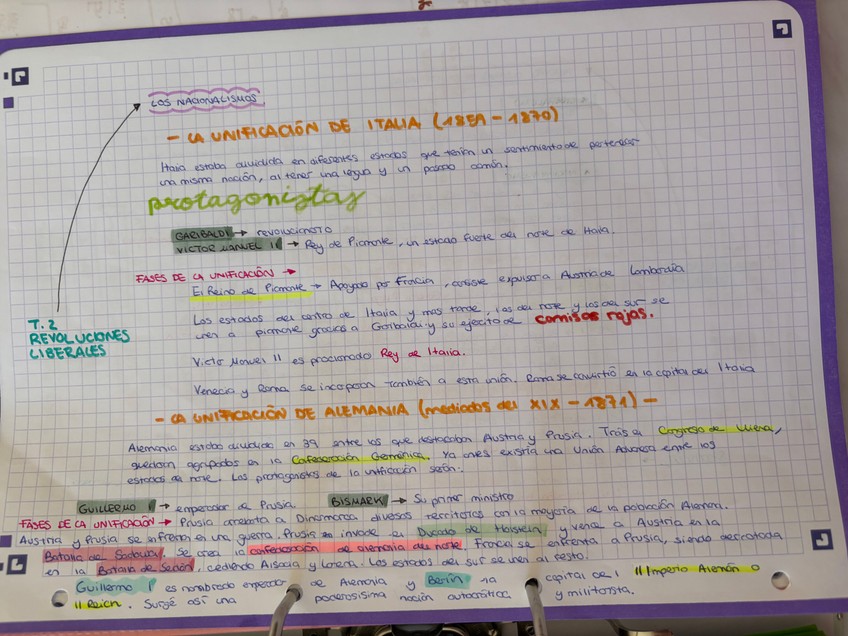 LOS NACIONALISMOS
- LA UNIFICACIÓN DE ITALIA (1859 - 1870)
Italia estaba dividida en diferentes estados que tenían un sentimiento de pertenecer
una misma nación, al tener una lengua y un pasado común.
protagonistas
GARIBALDI → revolucionario
VICTOR MANUEL II → Rey de Piamonte, un estado fuerte del norte de Italia.
FASES DE LA UNIFICACIÓN →
El Reino de Piamonte → Apoyado por Francia, consigue expulsar a Austria de Lombardía
Los estados del centro de Italia y mas tarde, los del norte y los del sur se
unen a piamonte gracias a Garibaldi y su ejercito de camisas rojas.
T.2
REVOLUCIONES
LIBERALES
Victor Manuel II es proclamado Rey de Italia.
Venecia y Roma se incorporan también a esta unión. Roma se convirtió en la capital del Italia
- LA UNIFICACIÓN DE ALEMANIA (mediados del XIX - 1871) -
Alemania estaba dividida en 39 entre los que destacaban Austria y Prusia. Trás el Congreso de Viena,
quedaron agrupados en la Confederación Germánica. Ya antes existía una Unión Aduanera entre los
estados del norte. Los protagonistas de la unificación serán:
GUILLERMO I → emperador de Prusia. BISMARK → Su primer ministro
FASES DE LA UNIFICACIÓN → Prusia arrebata a Dinamarca diversos territorios con la mayoría de la población Alemana.
Austria y Prusia se enfrentan en una guerra. Prusia invade el Ducado de Holstein, y vence a Austria en la
Batalla de Sadowa. Se crea la confederación de alemania del norte. Francia se enfrenta a Prusia, siendo derrotada
en la Batalla de Sedán, cediendo Alsacia y Lorena. Los estados del sur se unen al resto.
Guillermo I es nombrado emperador de Alemania y Berlín la capital del II Imperio Alemán o
II Reich. Surge así una poderosísima nación autocrática y militarista.